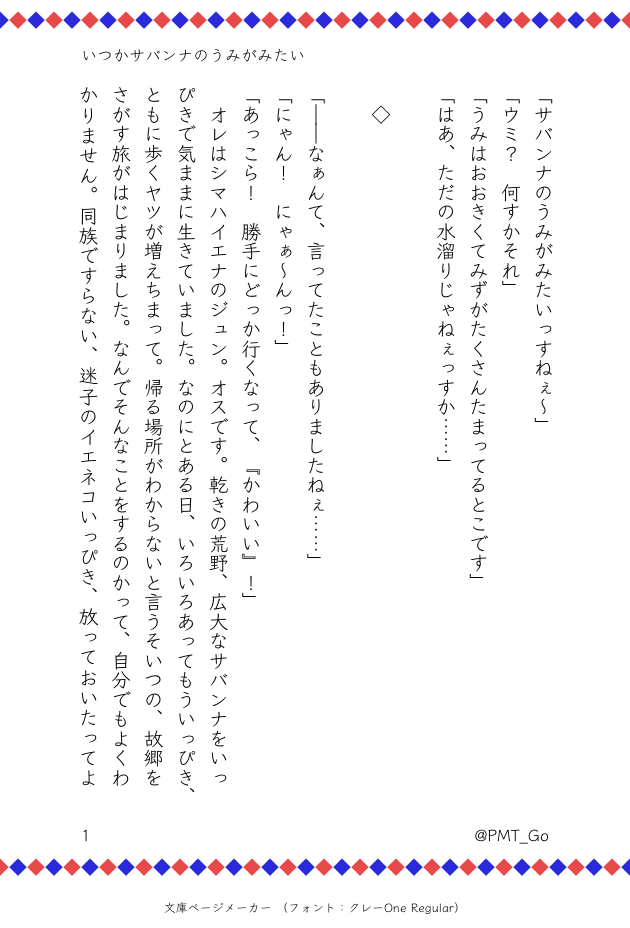 いつかサバンナのうみがみたい
「サバンナのうみがみたいっすねぇ〜」
「ウミ？　何すかそれ」
「うみはおおきくてみずがたくさんたまってるとこです」
「はあ、ただの水溜りじゃねぇっすか……」
◇
「――なぁんて、言ってたこともありましたねぇ……」
「にゃん！　にゃぁ〜んっ！」
「あっこら！　勝手にどっか行くなって、『かわいい』！」
　オレはシマハイエナのジュン。オスです。乾きの荒野、広大なサバンナをいっ
ぴきで気ままに生きていました。なのにとある日、いろいろあってもういっぴき、
ともに歩くヤツが増えちまって。帰る場所がわからないと言うそいつの、故郷を
さがす旅がはじまりました。なんでそんなことをするのかって、自分でもよくわ
かりません。同族ですらない、迷子のイエネコいっぴき、放っておいたってよ
1
@PMT_Go
文庫ページメーカー （フォント：クレーOne Regular）